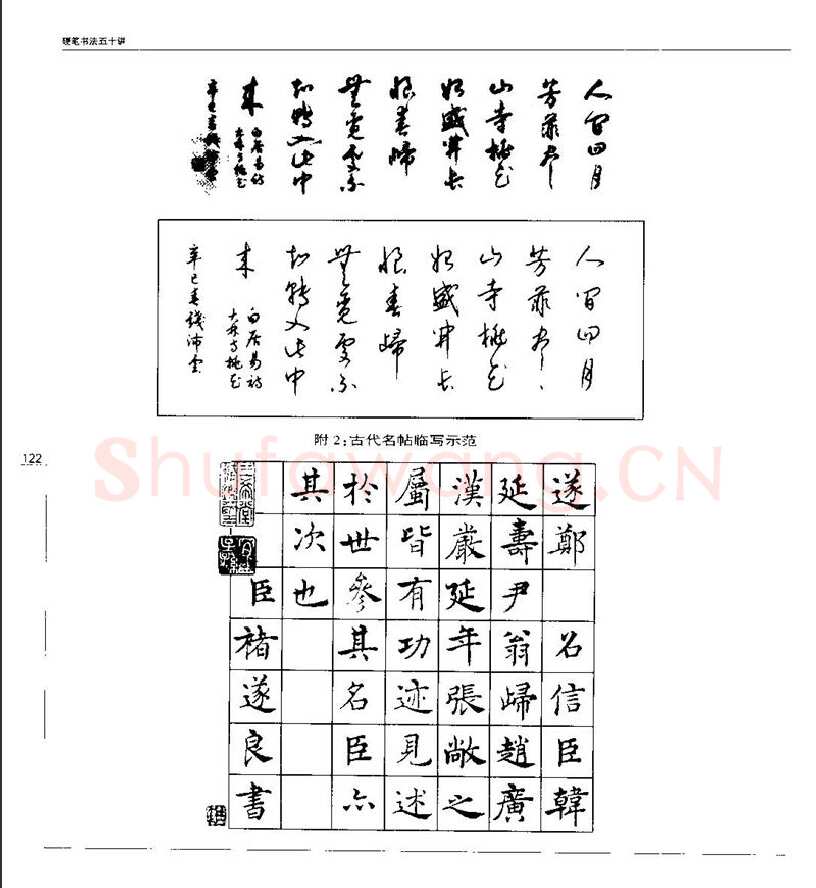 硬笔书法五十讲
人間四月
芳菲盡
山寺桃花
始盛開長
恨春歸
無覓處不
知轉入此中
來
白居易詩
大林寺桃花
辛巳春錢沛雲
人間四月
芳菲盡
山寺桃花
始盛開長
恨春歸
無覓處不
知轉入此中
來
白居易詩
大林寺桃花
辛巳春錢沛雲
附2:古代名帖临写示范
122
Shufawang.CN
遂鄭 名信臣韓
延壽尹翁歸趙廣
漢嚴延年張敞之
屬皆有功迹見述
於世參其名臣亦
其次也
臣褚遂良書